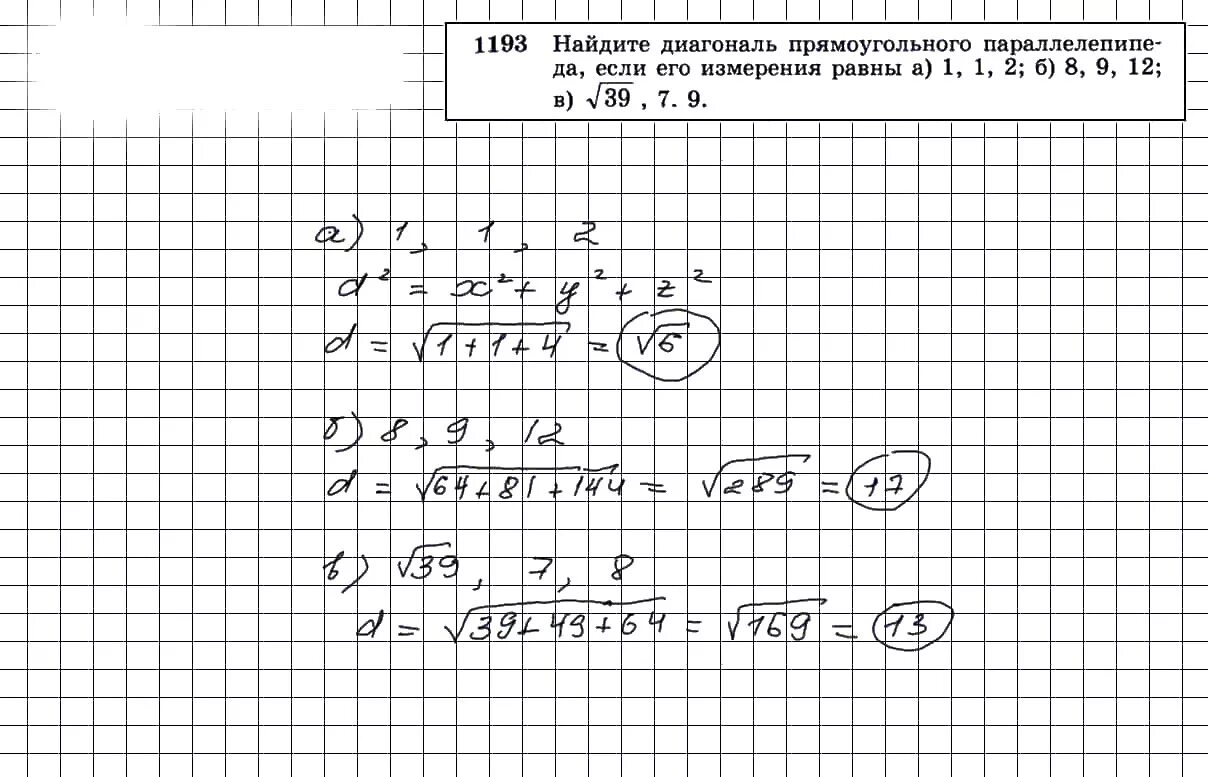 1193 Найдите диагональ прямоугольного параллелепипе-
да, если его измерения равны а) 1, 1, 2; б) 8, 9, 12;
в) √39 , 7. 9.
а) 1, 1, 2
d² = x² + y² + z²
d = √1+1+4 = √6
б) 8, 9, 12
d = √64+81+144 = √289 = 17
в) √39, 7, 8
d = √39+49+64 = √169 = 13